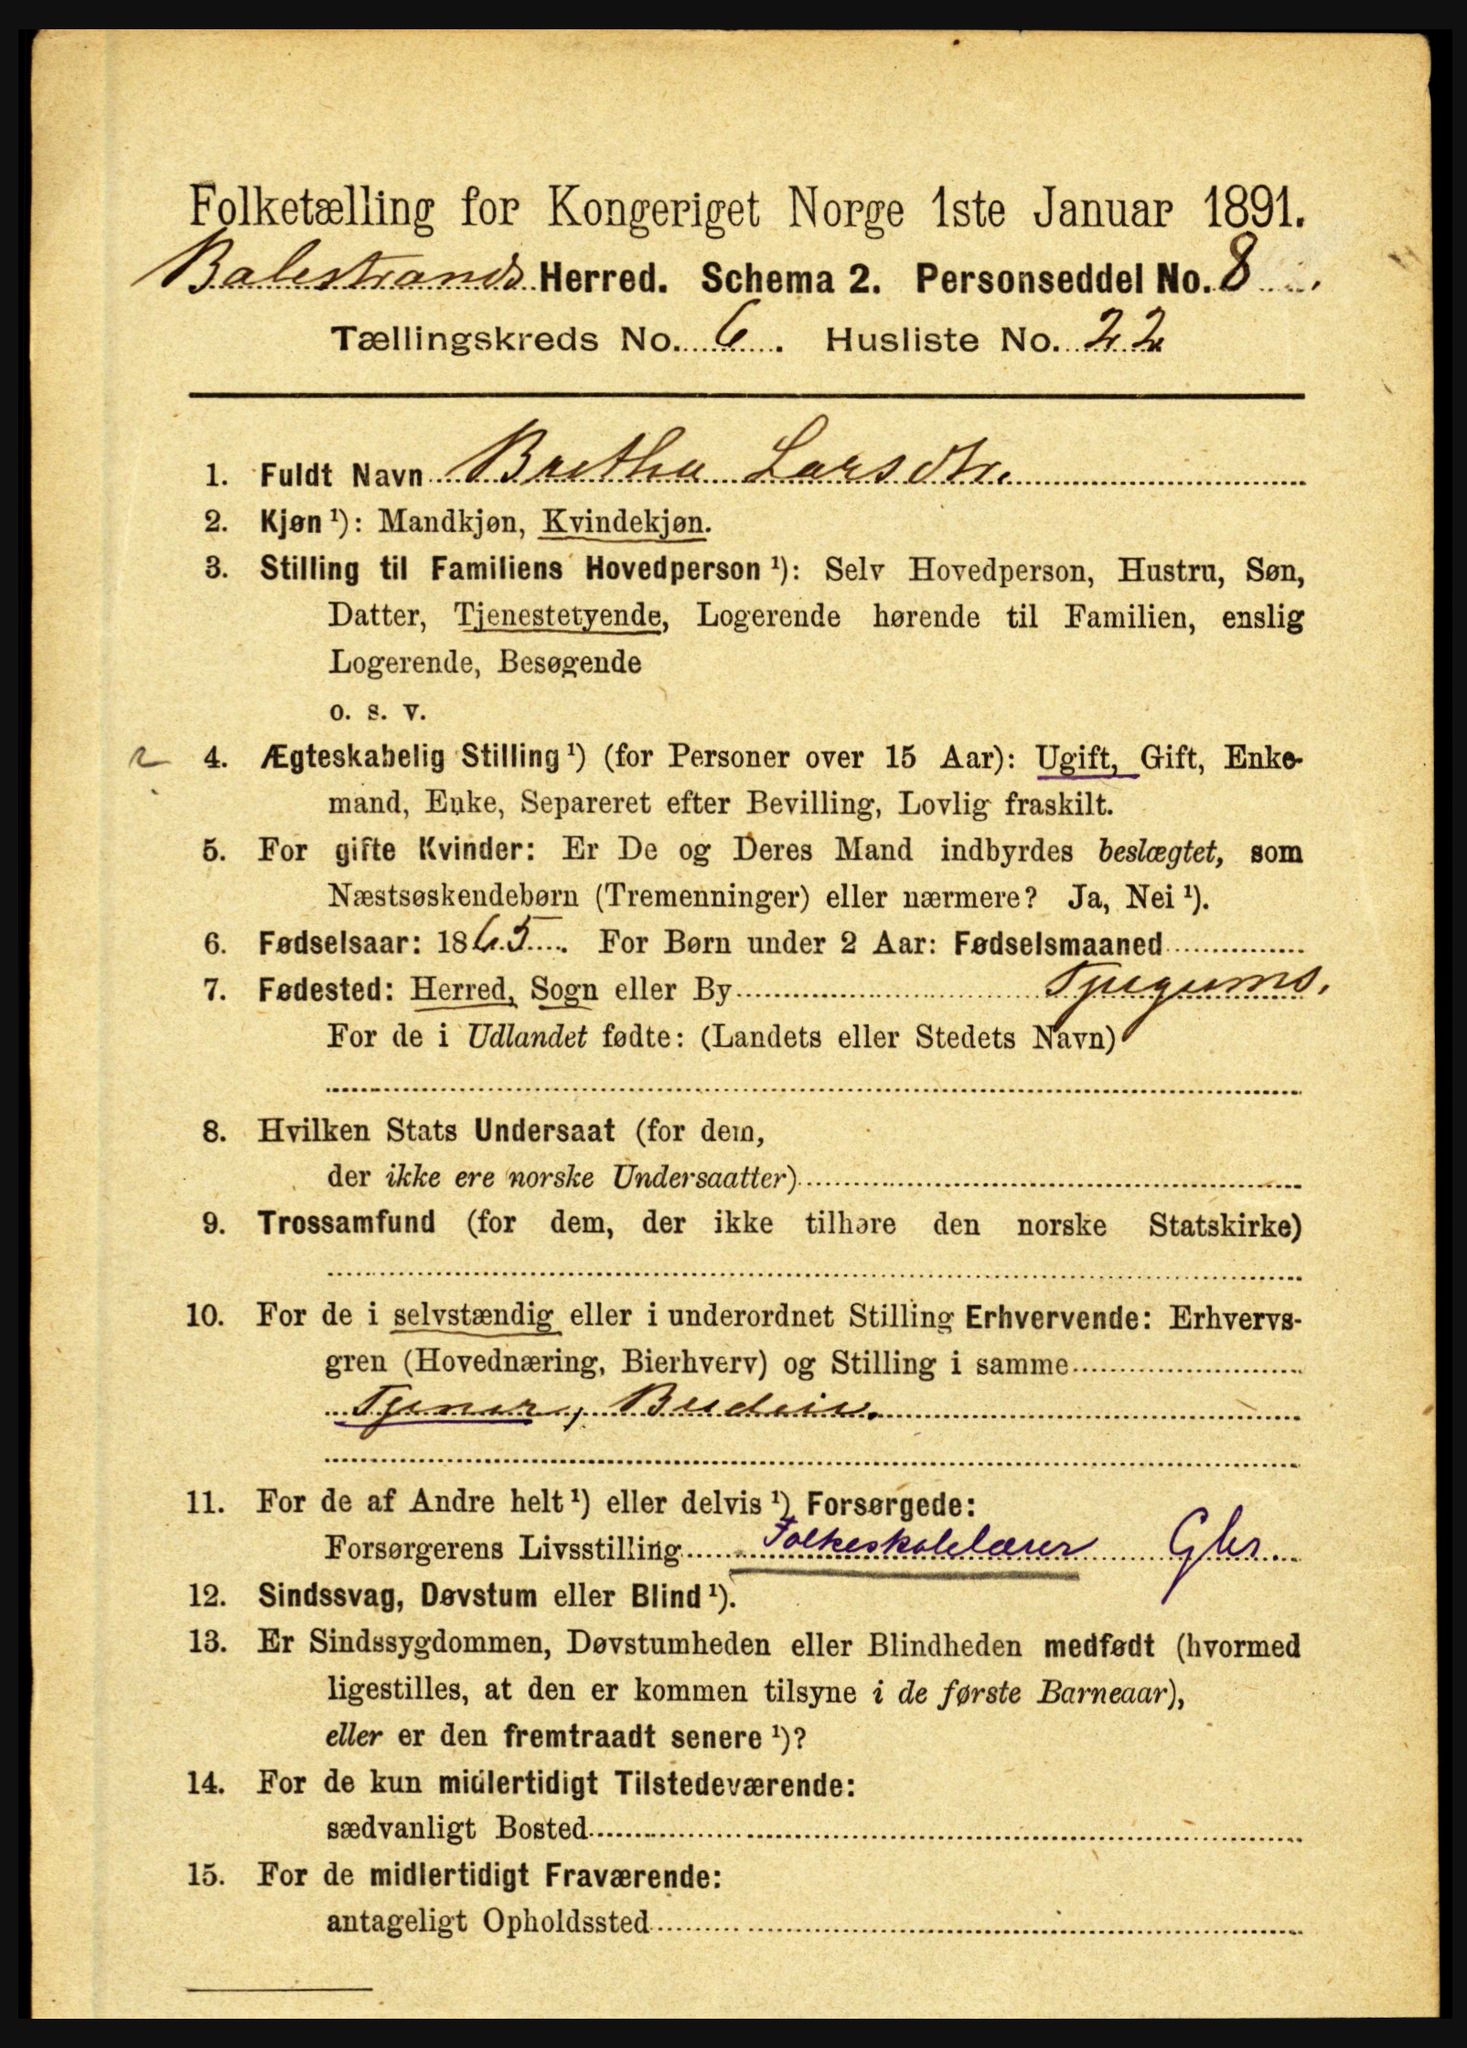 Folketælling for Kongeriget Norge 1ste Januar 1891.
Balestrands Herred. Schema 2. Personseddel No. 8
Tællingskreds No. 6. Husliste No. 22
1. Fuldt Navn Bretha Larsdtr.
2. Kjøn ¹): Mandkjøn, Kvindekjøn.
3. Stilling til Familiens Hovedperson ¹): Selv Hovedperson, Hustru, Søn,
Datter, Tjenestetyende, Logerende hørende til Familien, enslig
Logerende, Besøgende
o. s. v.
2 4. Ægteskabelig Stilling ¹) (for Personer over 15 Aar): Ugift, Gift, Enke-
mand, Enke, Separeret efter Bevilling, Lovlig fraskilt.
5. For gifte Kvinder: Er De og Deres Mand indbyrdes beslægtet, som
Næstsøskendebørn (Tremenninger) eller nærmere? Ja, Nei ¹).
6. Fødselsaar: 1865. For Børn under 2 Aar: Fødselsmaaned
7. Fødested: Herred, Sogn eller By Tjugums.
For de i Udlandet fødte: (Landets eller Stedets Navn)
8. Hvilken Stats Undersaat (for dem,
der ikke ere norske Undersaatter)
9. Trossamfund (for dem, der ikke tilhøre den norske Statskirke)
10. For de i selvstændig eller i underordnet Stilling Erhvervende: Erhvervs-
gren (Hovednæring, Bierhverv) og Stilling i samme
Tjener, Budeie.
11. For de af Andre helt ¹) eller delvis ¹) Forsørgede:
Forsørgerens Livsstilling Folkeskolelærer Gbr.
12. Sindssvag, Døvstum eller Blind ¹).
13. Er Sindssygdommen, Døvstumheden eller Blindheden medfødt (hvormed
ligestilles, at den er kommen tilsyne i de første Barneaar),
eller er den fremtraadt senere ¹)?
14. For de kun midlertidigt Tilstedeværende:
sædvanligt Bosted
15. For de midlertidigt Fraværende:
antageligt Opholdssted